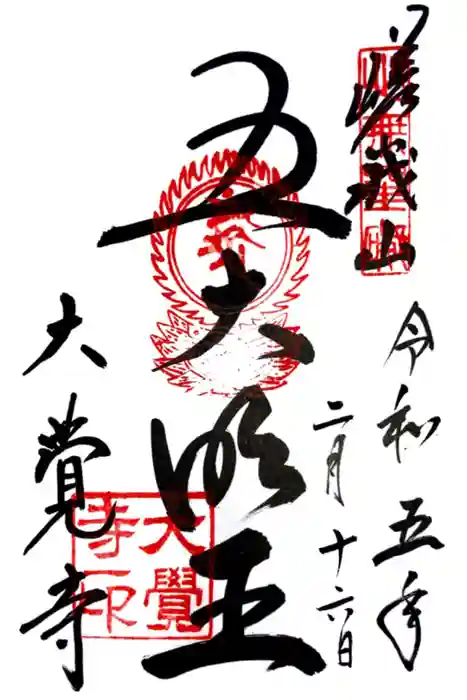 嵯峨山
令和五年
二月十六日
五大明王
大覚寺
大覺寺印